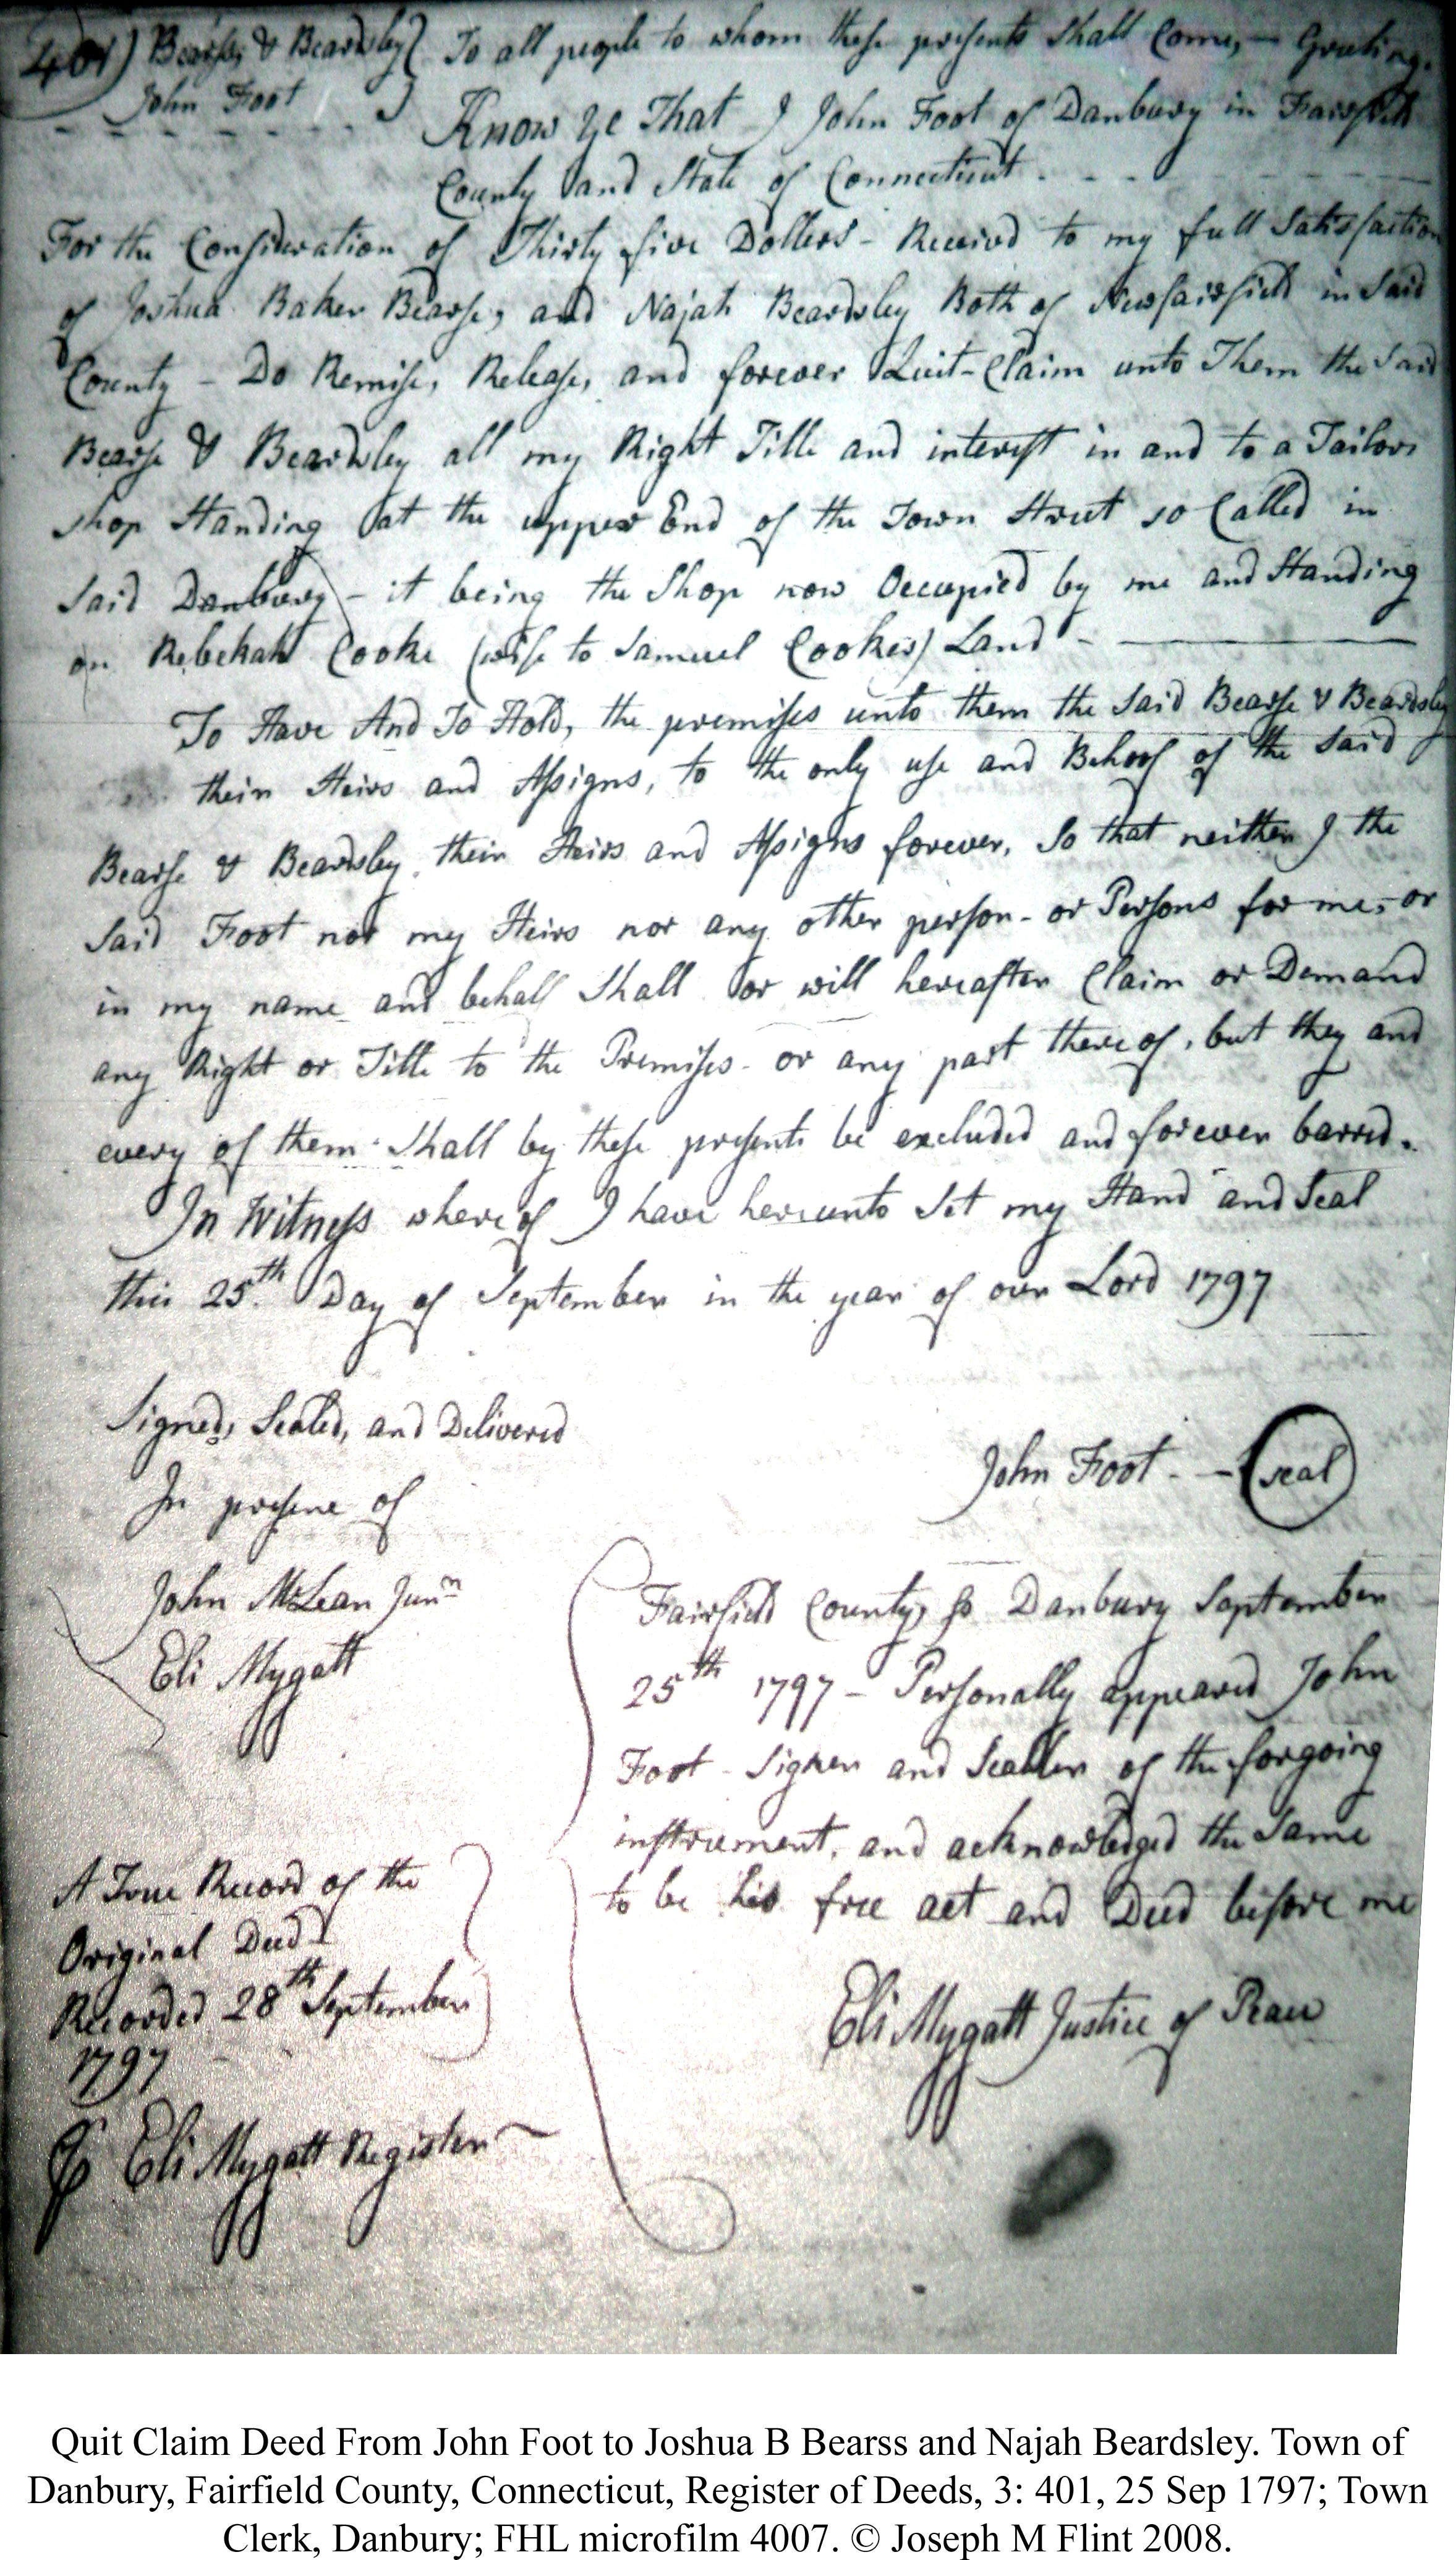 401) Bearse, & Beardsley} To all people to whom these presents Shall Come, — Greeting.
John Foot
Know Ye That I John Foot of Danbury in Fairfield
County and State of Connecticut . . .
For the Consideration of Thirty five Dollers - Received to my full Satisfaction
of Joshua Baker Bearse, and Najah Beardsley Both of Newfairfield in Said
County - Do Remise, Release, and forever Quit-Claim unto Them the Said
Bearse & Beardsley all my Right Title and interest in and to a Tailors
shop Standing at the upper End of the Town Street so Called in
Said Danbury - it being the Shop now Occupied by me and Standing
on Rebekah Cooke (wife to Samuel Cookes) Land -
To Have And To Hold, the premises unto them the Said Bearse & Beardsley
their Heirs and Assigns, to the only use and Behoof of the Said
Bearse & Beardsley, their Heirs and Assigns forever, So that neither I the
Said Foot nor my Heirs nor any other person - or Persons for me, or
in my name and behalf Shall or will hereafter Claim or Demand
any Right or Title to the Premises - or any part thereof, but they and
every of them Shall by these presents be excluded and forever barred.
In Witness whereof I have hereunto Set my Hand and Seal
this 25th. Day of September in the year of our Lord 1797
Signed, Sealed, and Delivered
In presene of
John McLean Junr
Eli Mygatt
John Foot - - (seal)
Fairfield County, ss Danbury September
25th 1797 - Personally appeared John
Foot - Signer and Sealler of the forgoing
instrument, and acknowledged the Same
to be his free act and Deed before me
Eli Mygatt Justice of Peace
A True Record of the
Original Deed
Recorded 28th September
1797
Eli Mygatt Register
Quit Claim Deed From John Foot to Joshua B Bearss and Najah Beardsley. Town of
Danbury, Fairfield County, Connecticut, Register of Deeds, 3: 401, 25 Sep 1797; Town
Clerk, Danbury; FHL microfilm 4007. © Joseph M Flint 2008.